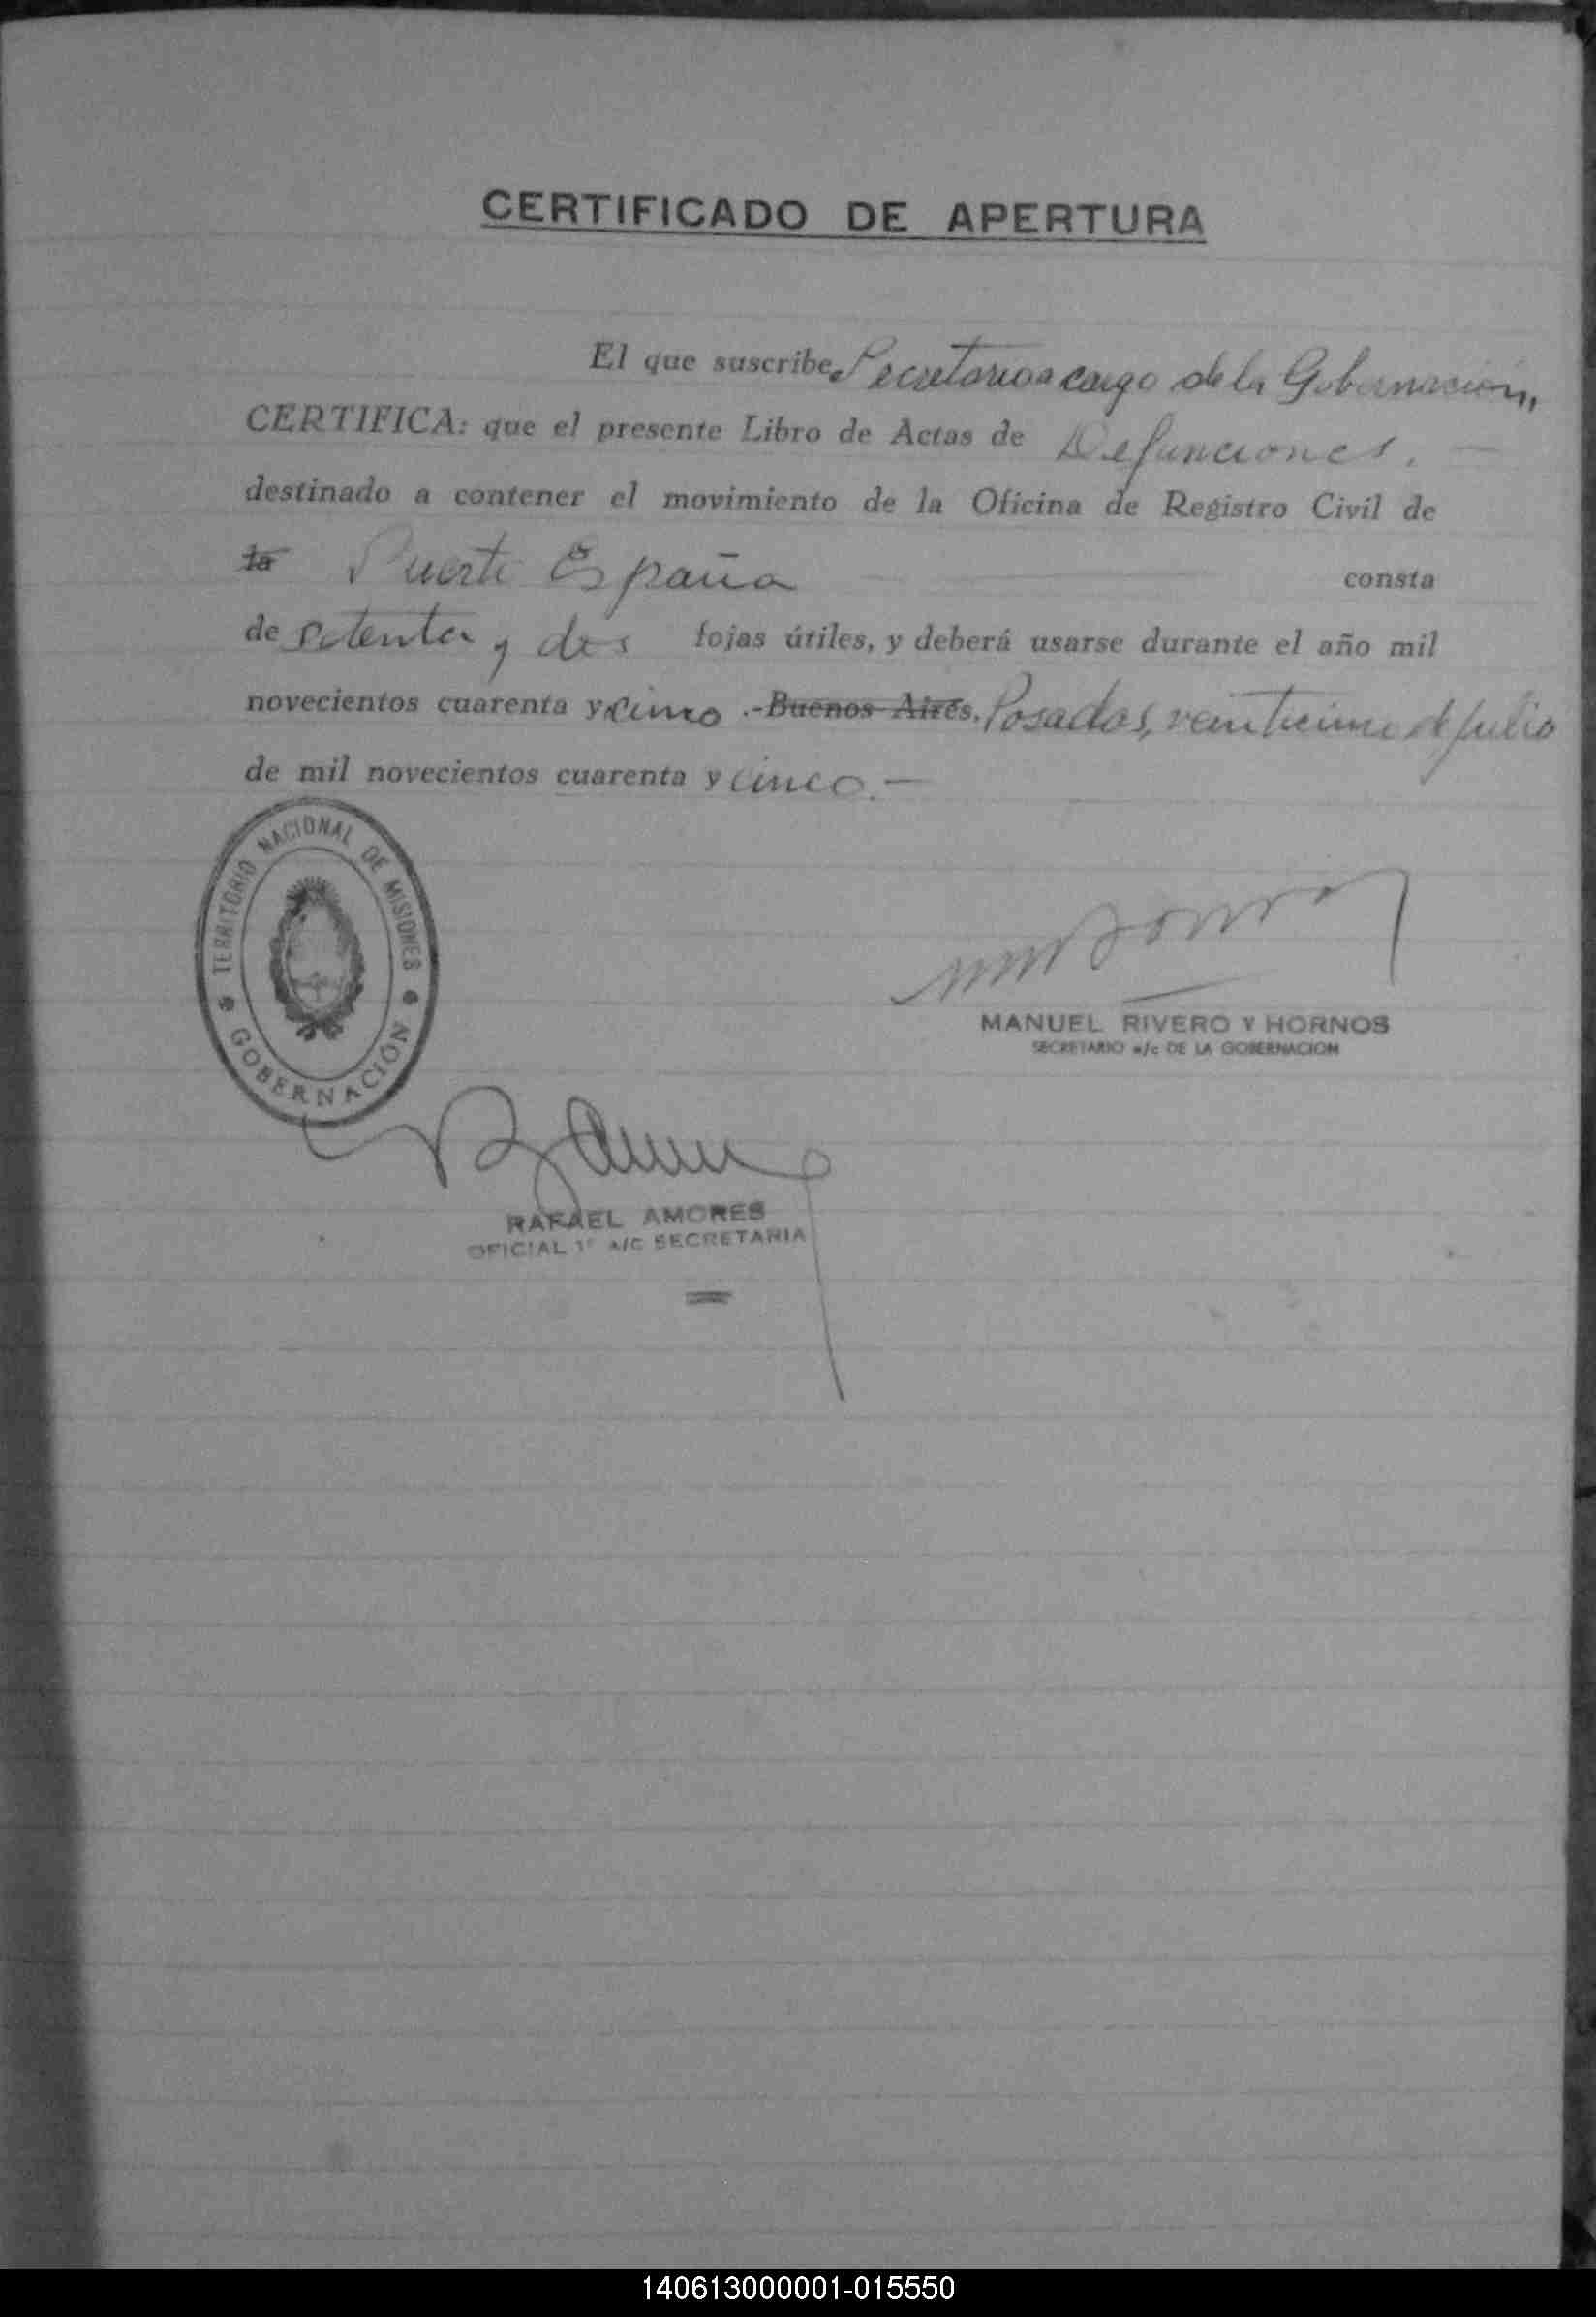 CERTIFICADO DE APERTURA
El que suscribe, Secretario a cargo de la Gobernación,
CERTIFICA: que el presente Libro de Actas de Defunciones. —
destinado a contener el movimiento de la Oficina de Registro Civil de
la Puerto España consta
de setenta y dos fojas útiles, y deberá usarse durante el año mil
novecientos cuarenta y cinco .-Buenos Aires, Posadas, veinticinco de julio
de mil novecientos cuarenta y cinco. —
TERRITORIO NACIONAL DE MISIONES
GOBERNACIÓN
MANUEL RIVERO Y HORNOS
SECRETARIO a/c DE LA GOBERNACION
RAFAEL AMORES
OFICIAL 1º A/C SECRETARIA
140613000001-015550